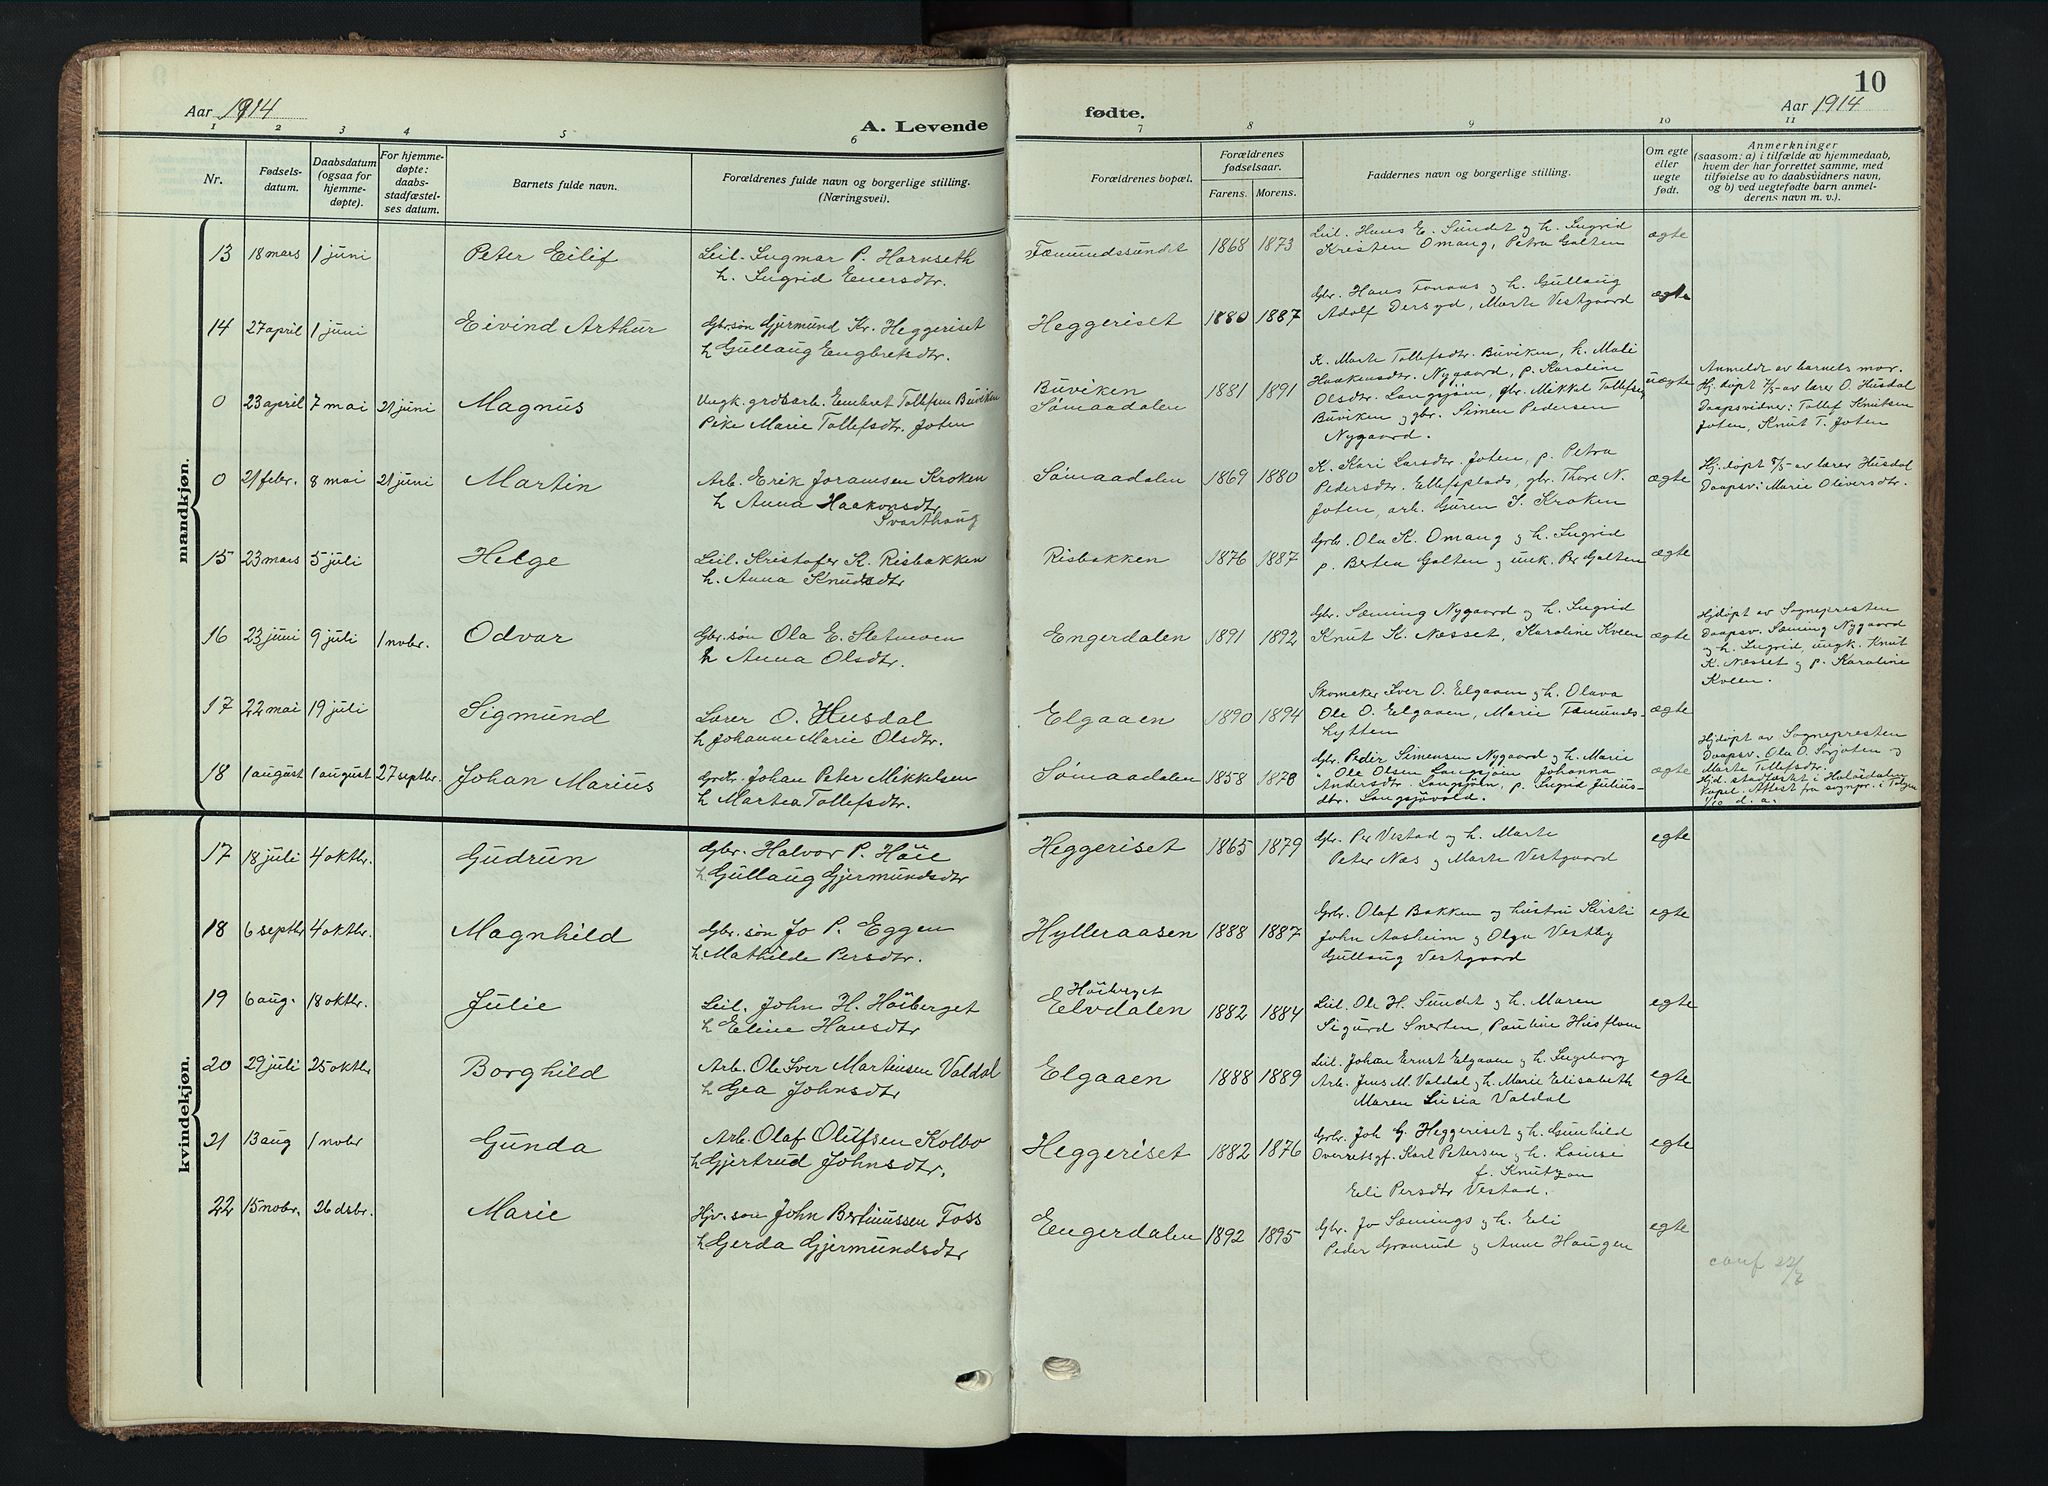 Aar 1914
A. Levende
fødte.
10
Aar 1914
1 2 3 4 5 6 7 8 9 10 11
Nr.
Fødsels-
datum.
Daabsdatum
(ogsaa for
hjemme-
døpte).
For hjemme-
døpte:
daabs-
stadfæstel-
ses datum.
Barnets fulde navn.
Forældrenes fulde navn og borgerlige stilling.
(Næringsvei).
Forældrenes bopæl.
Forældrenes
fødselsaar.
Farens. Morens.
Faddernes navn og borgerlige stilling.
Om egte
eller
uegte
født.
Anmerkninger
(saasom: a) i tilfælde av hjemmedaab,
hvem der har forrettet samme, med
tilføielse av to daabsvidners navn,
og b) ved uegtefødte barn anmel-
derens navn m. v.).
mandkjøn.
13 18 mars 1 juni Peter Eilif Leil. Ingmar P. Harnseth
h. Ingrid Enersdtr.
Fæmundssundet 1868 1873
Leil. Hans E. Sundet og h. Ingrid
Kristen Omang, Petra Galten
ægte
14 27 april 1 juni Eivind Arthur Gbr.søn Gjermund Kr. Heggeriset
h Gullaug Engbretsdtr.
Heggeriset 1880 1887
Gbr. Hans Fonaas og h. Gullaug
Adolf Dersyd, Marte Vestgaard
ægte
0 23 april 7 mai 21 juni Magnus Ungk. grubarb. Embret Tollefsen Buviken
Pike Marie Tollefsdtr. Joten
Buviken
Sømaadalen
1881 1891
K. Marte Tollefsdtr. Buviken, k. Mali
Haakensdtr. Nygaard, p. Karoline
Olsdtr. Langsjøin, gbr. Mikkel Tollefsen
Buviken og gbr. Simen Pedersen
Nygaard.
uægte
Anmeldt av barnets mor.
Hj. døpt 7/5 av lærer O. Husdal
Daapsvidner: Tollef Knutsen
Joten, Knut T. Joten
0 21 febr. 8 mai 21 juni Martin Arb. Erik Joramsen Kroken
h Anna Haakonsdtr.
Svarthaug
Sømaadalen 1869 1880
K. Kari Larsdtr. Joten, p. Petra
Pedersdtr. Ellefsplads, gbr. Thore N.
Joten, arb. Guren S. Kroken
ægte
Hj. døpt 8/5 av lærer Husdal
Daapsv: Marie Oliversdtr.
15 23 mars 5 juli Helge Leil. Kristofer K. Risbakken
h. Anna Knudsdtr
Risbakken 1876 1887
Grb. Ola K. Omang og h. Ingrid
p. Bertea Galten og unk. Per Galten
ægte
16 23 juni 9 juli 1 nobr. Odvar Gbr.søn Ola E. Sletmoen
h Anna Olsdtr.
Engerdalen 1891 1892
Gbr. Sæming Nygaard og h. Ingrid
Knut K. Næsset, Karoline Kveen
ægte
Hjdøpt av Sognepresten
Daapsv. Sæming Nygaard
og h. Ingrid, ungk. Knut
K. Næsset og p. Karoline
Kveen.
17 22 mai 19 juli Sigmund Lærer O. Husdal
h Johanne Marie Olsdtr.
Elgaaen 1890 1894
Skomaker Iver O. Elgaaen og h. Olava
Ole O. Elgaaen, Marie Fæmunds-
hytten
ægte
18 1 august 1 august 27 septbr. Johan Marius Grdbr. Johan Peter Mikkelsen
h Martea Tollefsdtr.
Sømaadalen 1858 1878
Gbr. Peder Simensen Nygaard og h. Marie
" Ole Olsen Langsjøen Johanna
Andersdtr. Langsjöen, p. Ingrid Julius-
dtr. Langsjövold.
ægte
Hjdøpt av Sognepresten
Daapsv. Ola O. Sorjoten og
Marte Tillefsdtr.
Hjd. stadfæstet i Holöidalen
kapel. Attest fra sognpr. i Tolgen
1/10 d. a.
kvindekjøn.
17 18 juli 4 oktbr. Gudrun Gbr. Halvor P. Höie
h. Gullaug Gjermundsdtr
Heggeriset 1865 1879
Gbr. Per Vestad og h. Marte
Peter Næs og Marte Vestgaard
egte
18 6 septbr 4 oktbr. Magnhild Gbr. søn Jo P. Eggen
h. Mathilde Persdtr.
Hylleraasen 1888 1887
Grbr. Olaf Bakken og hustru Kirsti
John Aasheim og Olga Vestby
Gullaug Vestgaard
egte
19 6 aug. 18 oktbr. Julie Leil. John H. Höiberget
h Eline Hansdtr
Höiberget
Elvdalen
1882 1884
Leil. Ole H. Sundet og h. Maren
Sigurd Snerten, Pauline Husfloen
egte
20 29 juli 25 oktbr Borghild Arb. Ole Iver Martinsen Valdal
h Gea Johnsdtr
Elgaaen 1888 1889
Leil. Johan Ernst Elgaaen og h. Ingeborg
Arb. Jens M. Valdal og h. Marie Elisabeth
Maren Lusia Valdal
egte
21 13 aug 1 nobr Gunda Arb. Olaf Olufsen Kolbo
h Gjertrud Johnsdtr.
Heggeriset 1882 1876
Grbr. Joh G. Heggeriset og h. Gunhild
Overretsgf. Karl Petersen og h. Louise
f. Knutzon
Eli Persdtr Vestad.
egte
22 15 nobr. 26 dsbr. Marie Hjv. søn John Bertinussen Foss
h Gerda Gjermundsdtr
Engerdalen 1892 1895
Gbr. Jo Sæmings og h. Eli
Peder Granrud og Anne Haugen
egte
conf 22/7